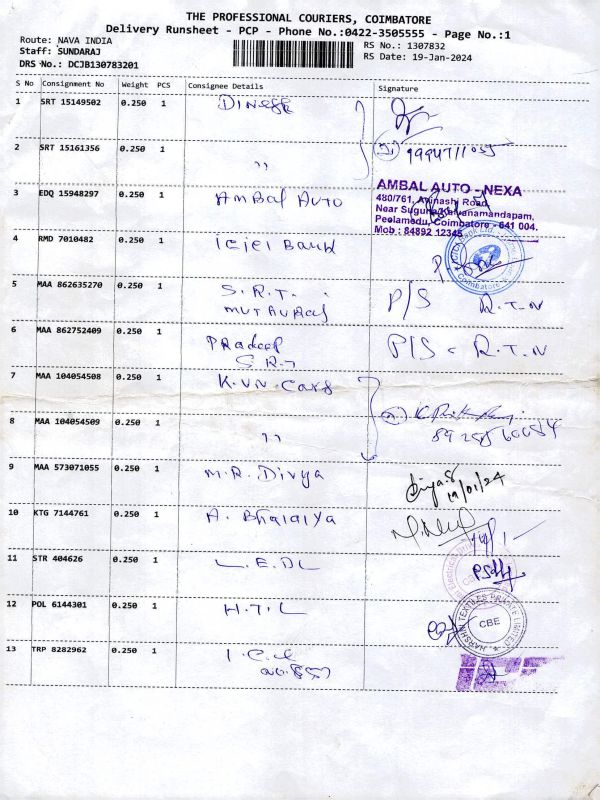 THE PROFESSIONAL COURIERS, COIMBATORE
Delivery Runsheet - PCP - Phone No.:0422-3505555 - Page No.:1
Route: NAVA INDIA
RS No.: 1307832
Staff: SUNDARAJ
RS Date: 19-Jan-2024
DRS No.: DCJB130783201
S No Consignment No Weight PCS Consignee Details Signature
1 SRT 15149502 0.250 1 Dinesh
2 SRT 15161356 0.250 1 ,,
3 EDQ 15948297 0.250 1 Ambal Auto
AMBAL AUTO - NEXA
480/761, Avinashi Road,
Near Suguna Kalyanamandapam,
Peelamedu, Coimbatore - 641 004.
Mob : 84892 12345
4 RMD 7010482 0.250 1 Icici Bank
5 MAA 862635270 0.250 1 S.R.T. P/S R.T.N
6 MAA 862752409 0.250 1 Pradeep P/S - R.T.N
S.R.T
7 MAA 104054508 0.250 1 K.V.N. Cars
8 MAA 104054509 0.250 1 ,,
9 MAA 573071055 0.250 1 M.R. Divya
19/01/24
10 KTG 7144761 0.250 1 A.
11 STR 404626 0.250 1
12 POL 6144301 0.250 1 H.T.L
HARSHNI TEXTILES PRIVATE LIMITED
CBE
13 TRP 8282962 0.250 1